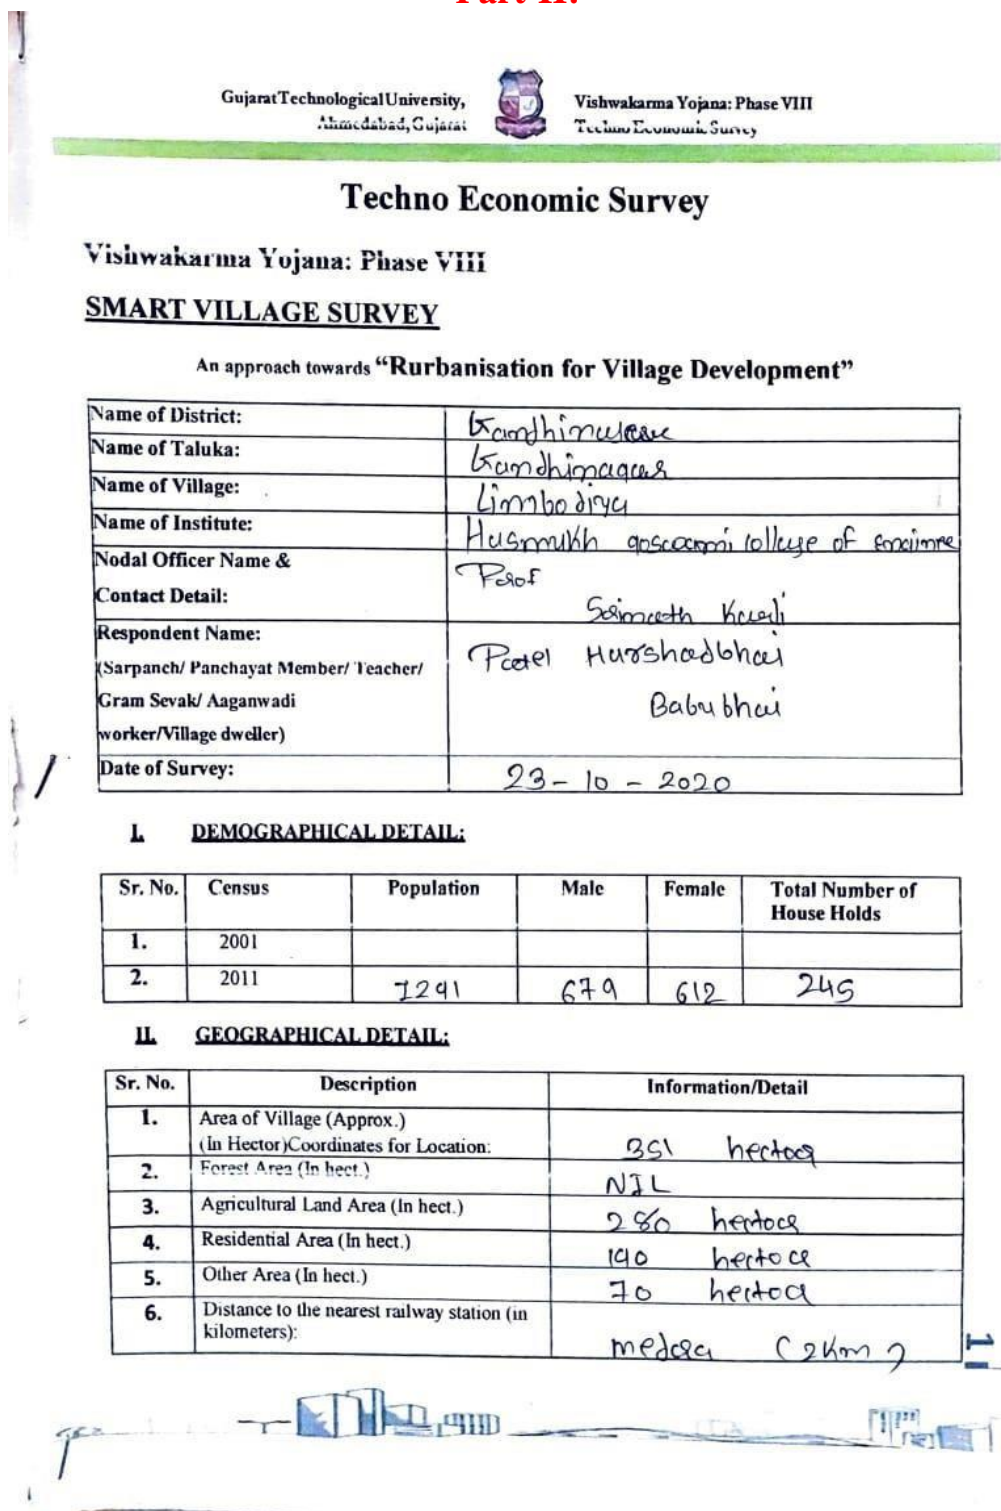 Part-II:
Gujarat Technological University,
Ahmedabad, Gujarat
Vishwakarma Yojana: Phase VIII
Techno Economic Survey
Techno Economic Survey
Vishwakarma Yojana: Phase VIII
SMART VILLAGE SURVEY
An approach towards “Rurbanisation for Village Development”
Name of District:
Name of Taluka: Gandhinagar
Name of Village: Limbodiya
Name of Institute: Husmukh goscammi college of
Nodal Officer Name & Prof
Contact Detail:
Respondent Name: Patel Hurshadbhai
(Sarpanch/ Panchayat Member/ Teacher/
Gram Sevak/ Aaganwadi Babubhai
worker/Village dweller)
Date of Survey: 23-10-2020
I. DEMOGRAPHICAL DETAIL:
Sr. No. Census Population Male Female Total Number of
House Holds
1. 2001
2. 2011 1291 679 612 245
II. GEOGRAPHICAL DETAIL:
Sr. No. Description Information/Detail
1. Area of Village (Approx.)
(In Hector)Coordinates for Location: 351 hector
2. Forest Area (In hect.) NIL
3. Agricultural Land Area (In hect.) 280 hector
4. Residential Area (In hect.) 190 hector
5. Other Area (In hect.) 70 hector
6. Distance to the nearest railway station (in
kilometers): medra (2km)